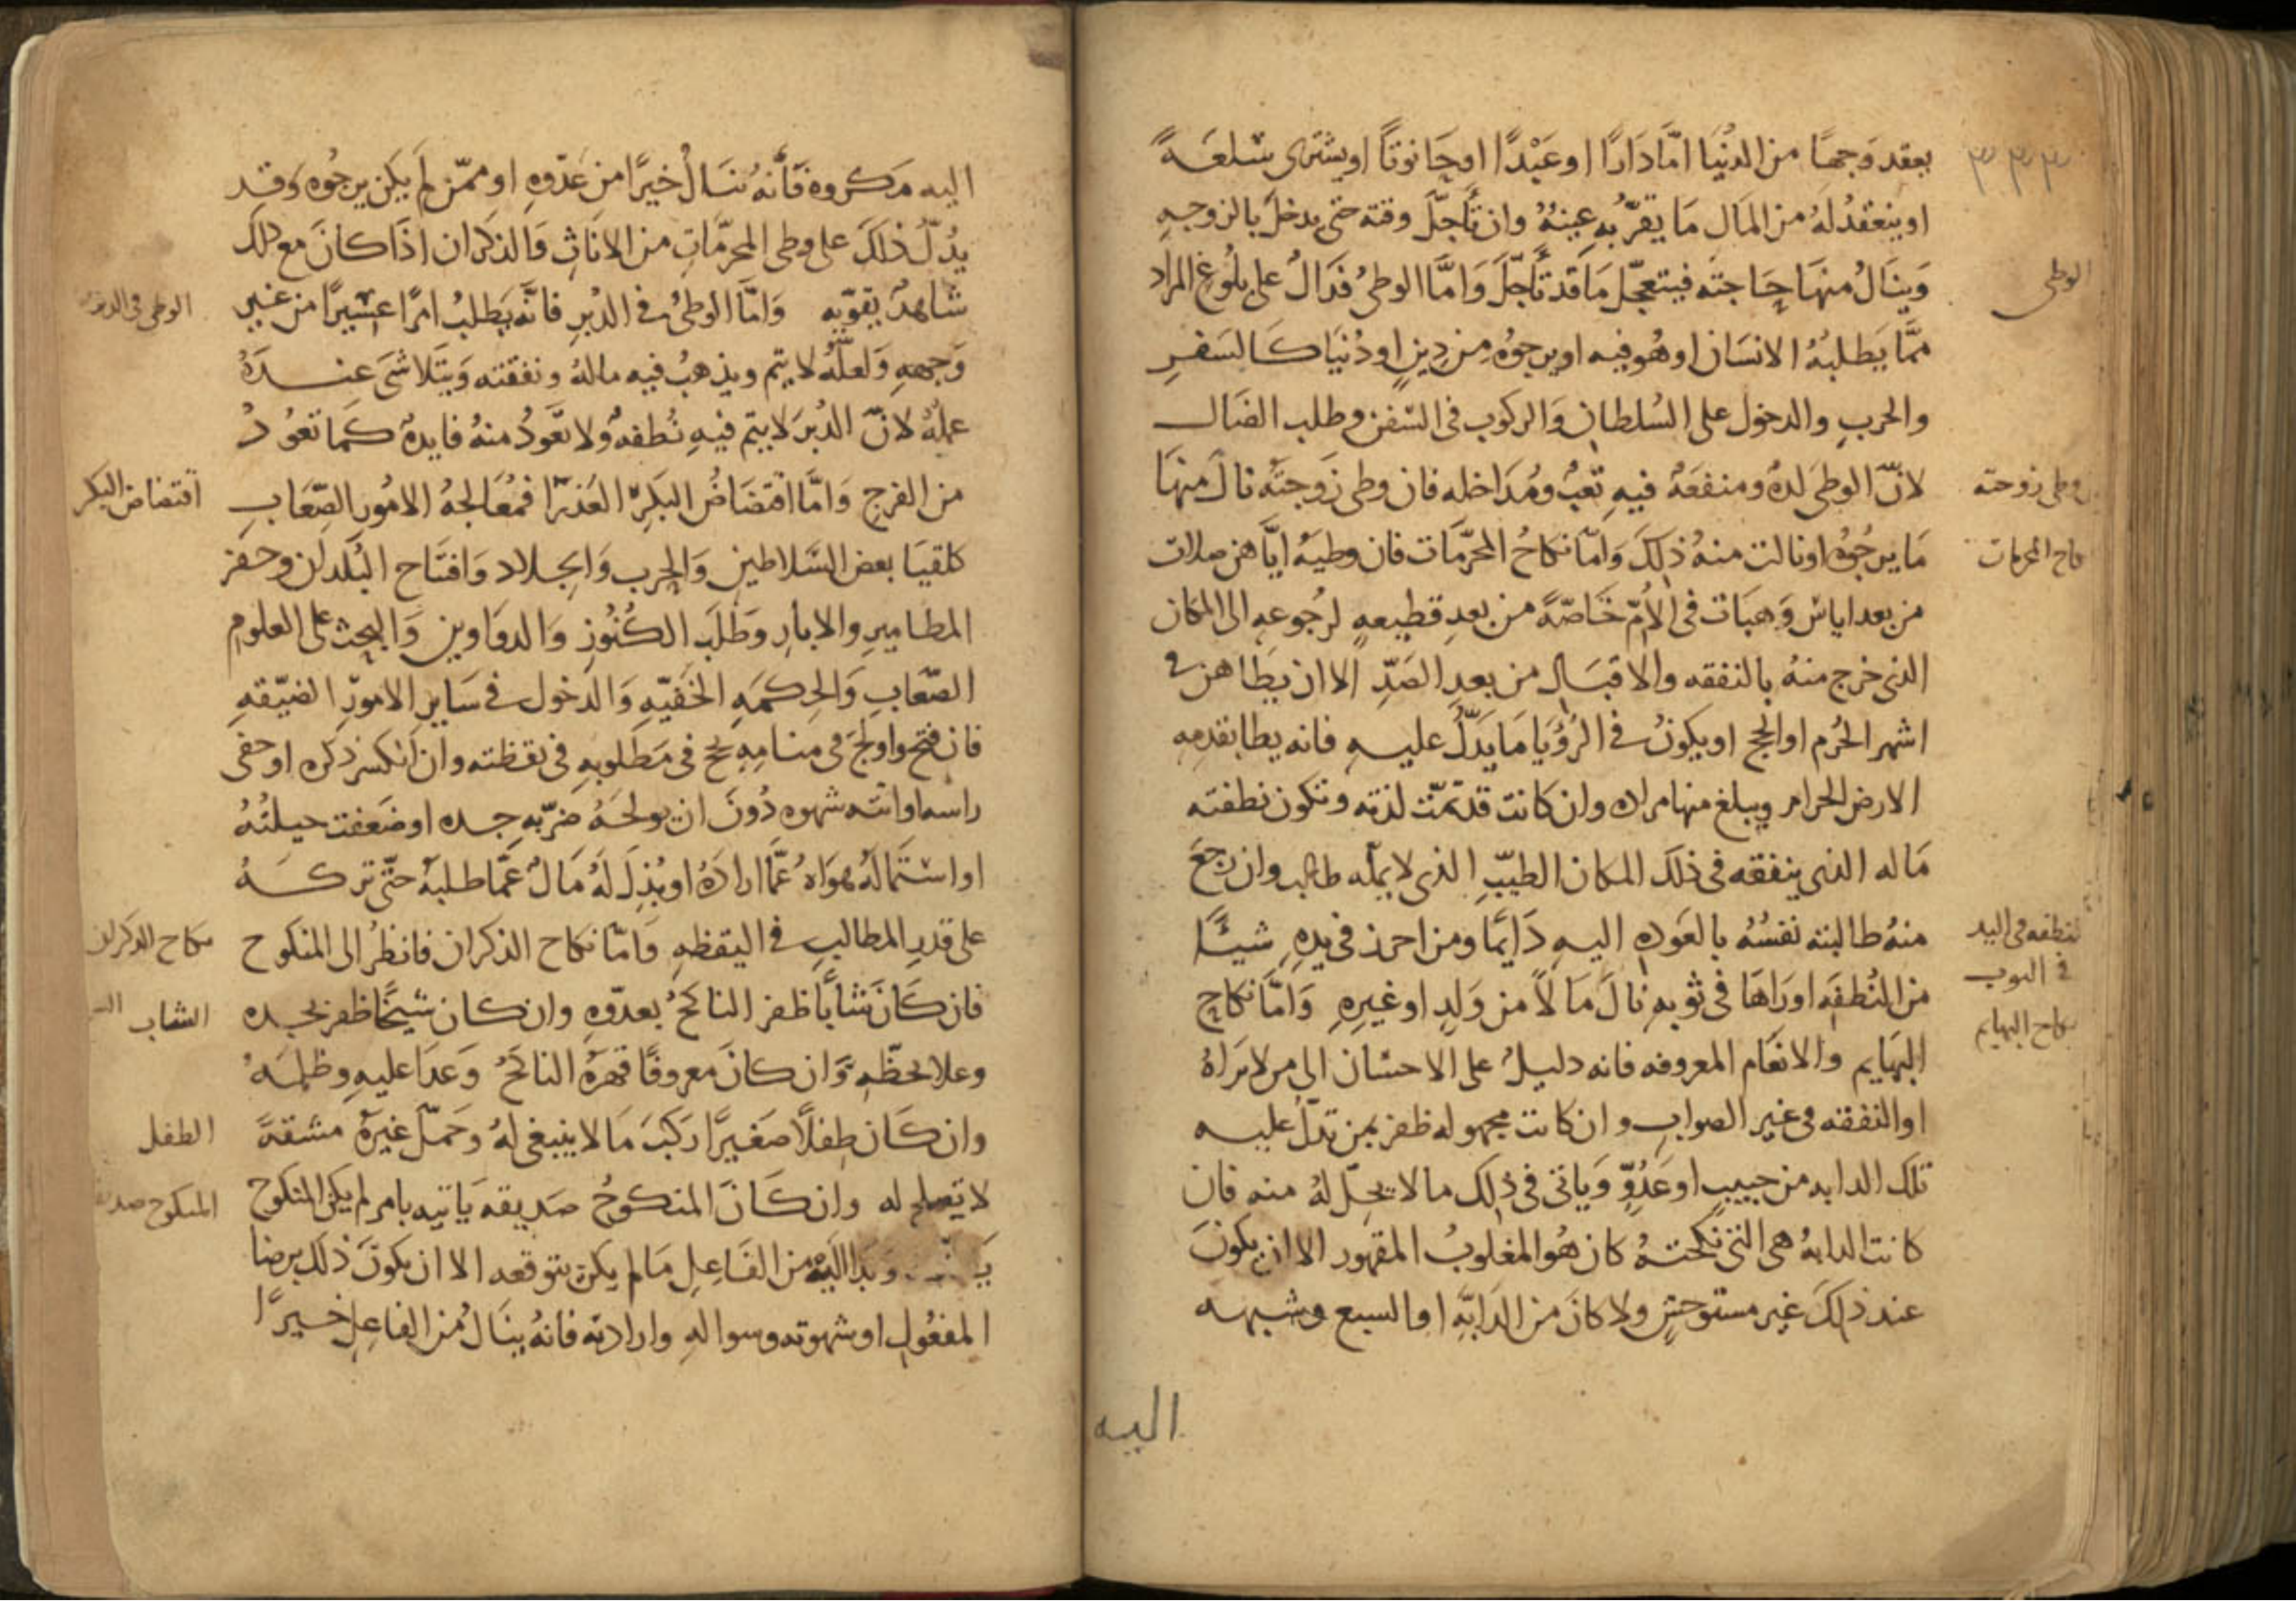 ٣٣٣
بعقد وَجهًا من الدنيَا امّا دَارًا او عَبْدًا او حَانوتًا او يشترى سلعَةً
او ينعقدُ لهُ من المَال مَا يقرّ به عينهُ وان تأجّل وقته حتى يدخلَ بالزوجهِ
وَينَالُ منهَا حَاجته فيتعجّل مَا قد تأجّلَ وَامَّا الوطىُ فدَالٌ على بلُوغ المراد
الوطى
ممَّا يَطلبهُ الانسَان او هُو فيه او يرجوُه من دِينٍ او دُنيَا كَالسَفرِ
والحربِ والدخول على السُلطانِ وَالركوب فى السّفن وطلب الضَال
لانّ الوطىَ لذهٌ ومنفعَةٌ فيهِ تعبٌ ومُدَاخله فان وطى زَوجتَهُ نالَ منهَا
وطى زوجته
مَا يرجُوهُ او نالت منهُ ذلكَ وَامّا نكاحُ المحرّمَات فان وطيَهُ ايَّاهن صلات
نكاح المحرمات
من بعد اياسٍ وَهبَات فى الأُمّ خَاصّةً من بعدِ قطيعهٍ لرُجوعهِ الى المكان
الذى خرج منهُ بالنفقه والاقبَال من بعدِ الصَدِّ الا ان يَطَاهن فى
اشهر الحُرم او الحج او يكونُ فى الرُؤيَا مَا يَدلُّ عليهِ فانه يطا بقدمهِ
الارض الحرام ويبلغ منها مراده وان كانت قد تمّت لذته وتكون نطفته
مَاله الذى ينفقه فى ذلكَ المكان الطيّبِ الذى لا يملّه طالب وان رجعَ
منهُ طالبته نفسُهُ بالعَودهِ اليهِ دَايمًا ومن احرز فى يدِهِ شيئًا
النطفه فى اليد
من النُطفَهِ او رَاهَا فى ثوبهِ نالَ مَالاً من وَلدٍ او غيرِهِ وَامَّا نكاح
فى الثوب
البهَايم والانعَام المعروفه فانه دليلٌ على الاحسَان الى من لا يَرَاهُ
نكاح البهايم
او النفقه فى غير الصوابِ وان كانت مجهوله ظفر بمن تدلّ عليه
تلك الدابه من حبيبٍ او عَدُوٍّ وَياتى فى ذلك مالا يحِلّ لهُ منه فان
كانت الدابهُ هى التى نكحتهُ كان هُو المغلوبُ المقهور الا ان يكونَ
عند ذلكَ غير مستوحشٍ ولا كانَ من الدَابّهِ او السبع وشبهه
اليه
اليه مَكروه فَانّهُ ينَالُ خيرًا من عَدّوهِ او ممّن لَم يكن يرجُوه وَقد
يدُلّ ذلكَ على وطى المحرّمَاتِ من الانَاثِ وَالذكران اذَا كانَ مع ذلكَ
شاهدٌ يقوّيه وَامَّا الوطىُ فى الدُبرِ فانّه يَطلبُ امرًا عسِيرًا من غير
الوطى فى الدبر
وَجههِ وَلعلّهُ لا يتم ويذهبُ فيه مالهُ ونفقته وَيتَلاشى عنـدَهُ
عملهُ لانّ الدُبرَ لا يتم فيهِ نُطفهٌ ولا تعُودُ منهُ فايدهٌ كمَا تعُودُ
من الفرج وَامَّا افتضَاضُ البَكِرة العَذرَا فمُعَالجهُ الامُور الصِّعَابِ
افتضاض البكر
كلقيَا بعض السَّلاطين وَالحرب وَالجلاد وَافتَاح البُلدان وحفر
المطاميرِ والابارِ وَطَلَب الكنُوزِ وَالدوَاوين وَالبحث على العلوم
الصّعَابِ وَالحِكمَهِ الخفيّهِ وَالدخول فى سَاير الامورِ الضيّقهِ
فان فتح واولجَ فى منامِهِ نجح فى مَطلوبهِ فى يقظته وان انكسر ذكره او حفى
راسه او انته شهوه دُونَ ان يولجَهُ ضرّ به جـده او ضعفت حيلتُهُ
او استَمالهُ هوَاهُ عمَّا ارادَهُ او بُذِلَ لَهُ مَالٌ عَمَّا طلبهُ حتّى تركـهُ
على قدرِ المطالبِ فى اليقظهِ وَامّا نكاح الذكران فانظُر الى المنكوح
نكاح الذكران
فان كَانَ شَابًا ظفر الناكحُ بعدّوهِ وان كان شيخًا ظفر بجـده
الشاب
وعلا بحَظّهِ وَان كانَ معروفًا قهرَهُ الناكحُ وَعَدَا عليهِ وظلمَهُ
وان كَان طِفلًا صَغيرًا ركبَ مَا لا ينبغى لهُ وَحَمّل غيرهُ مشقةً
الطفل
لا تصلح له وان كَانَ المنكوحُ صَديقه يَاتيه بامر لم يكن المنكوح
المنكوح صديقه
وَبَدا اليهِ من الفَاعِل مَا لم يكن يتوقعه الا ان يكونَ ذلكَ برضا
المفعُول او شهوته وسواله وارادته فانهُ ينَالُ من الفاعِل خـيرًا